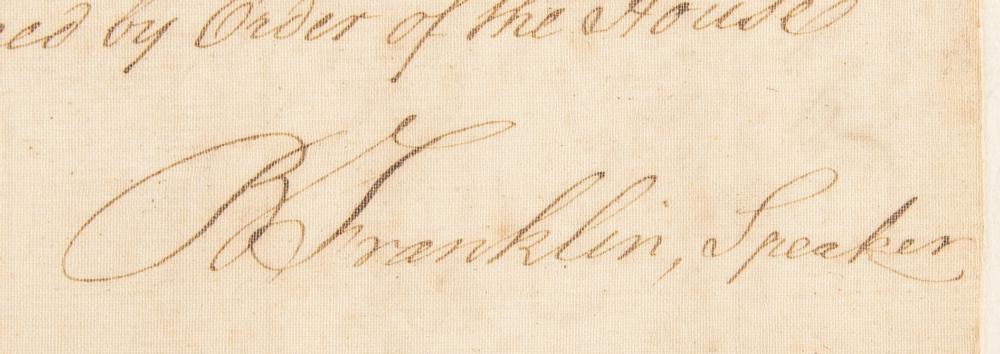 ned by Order of the House
B Franklin, Speaker